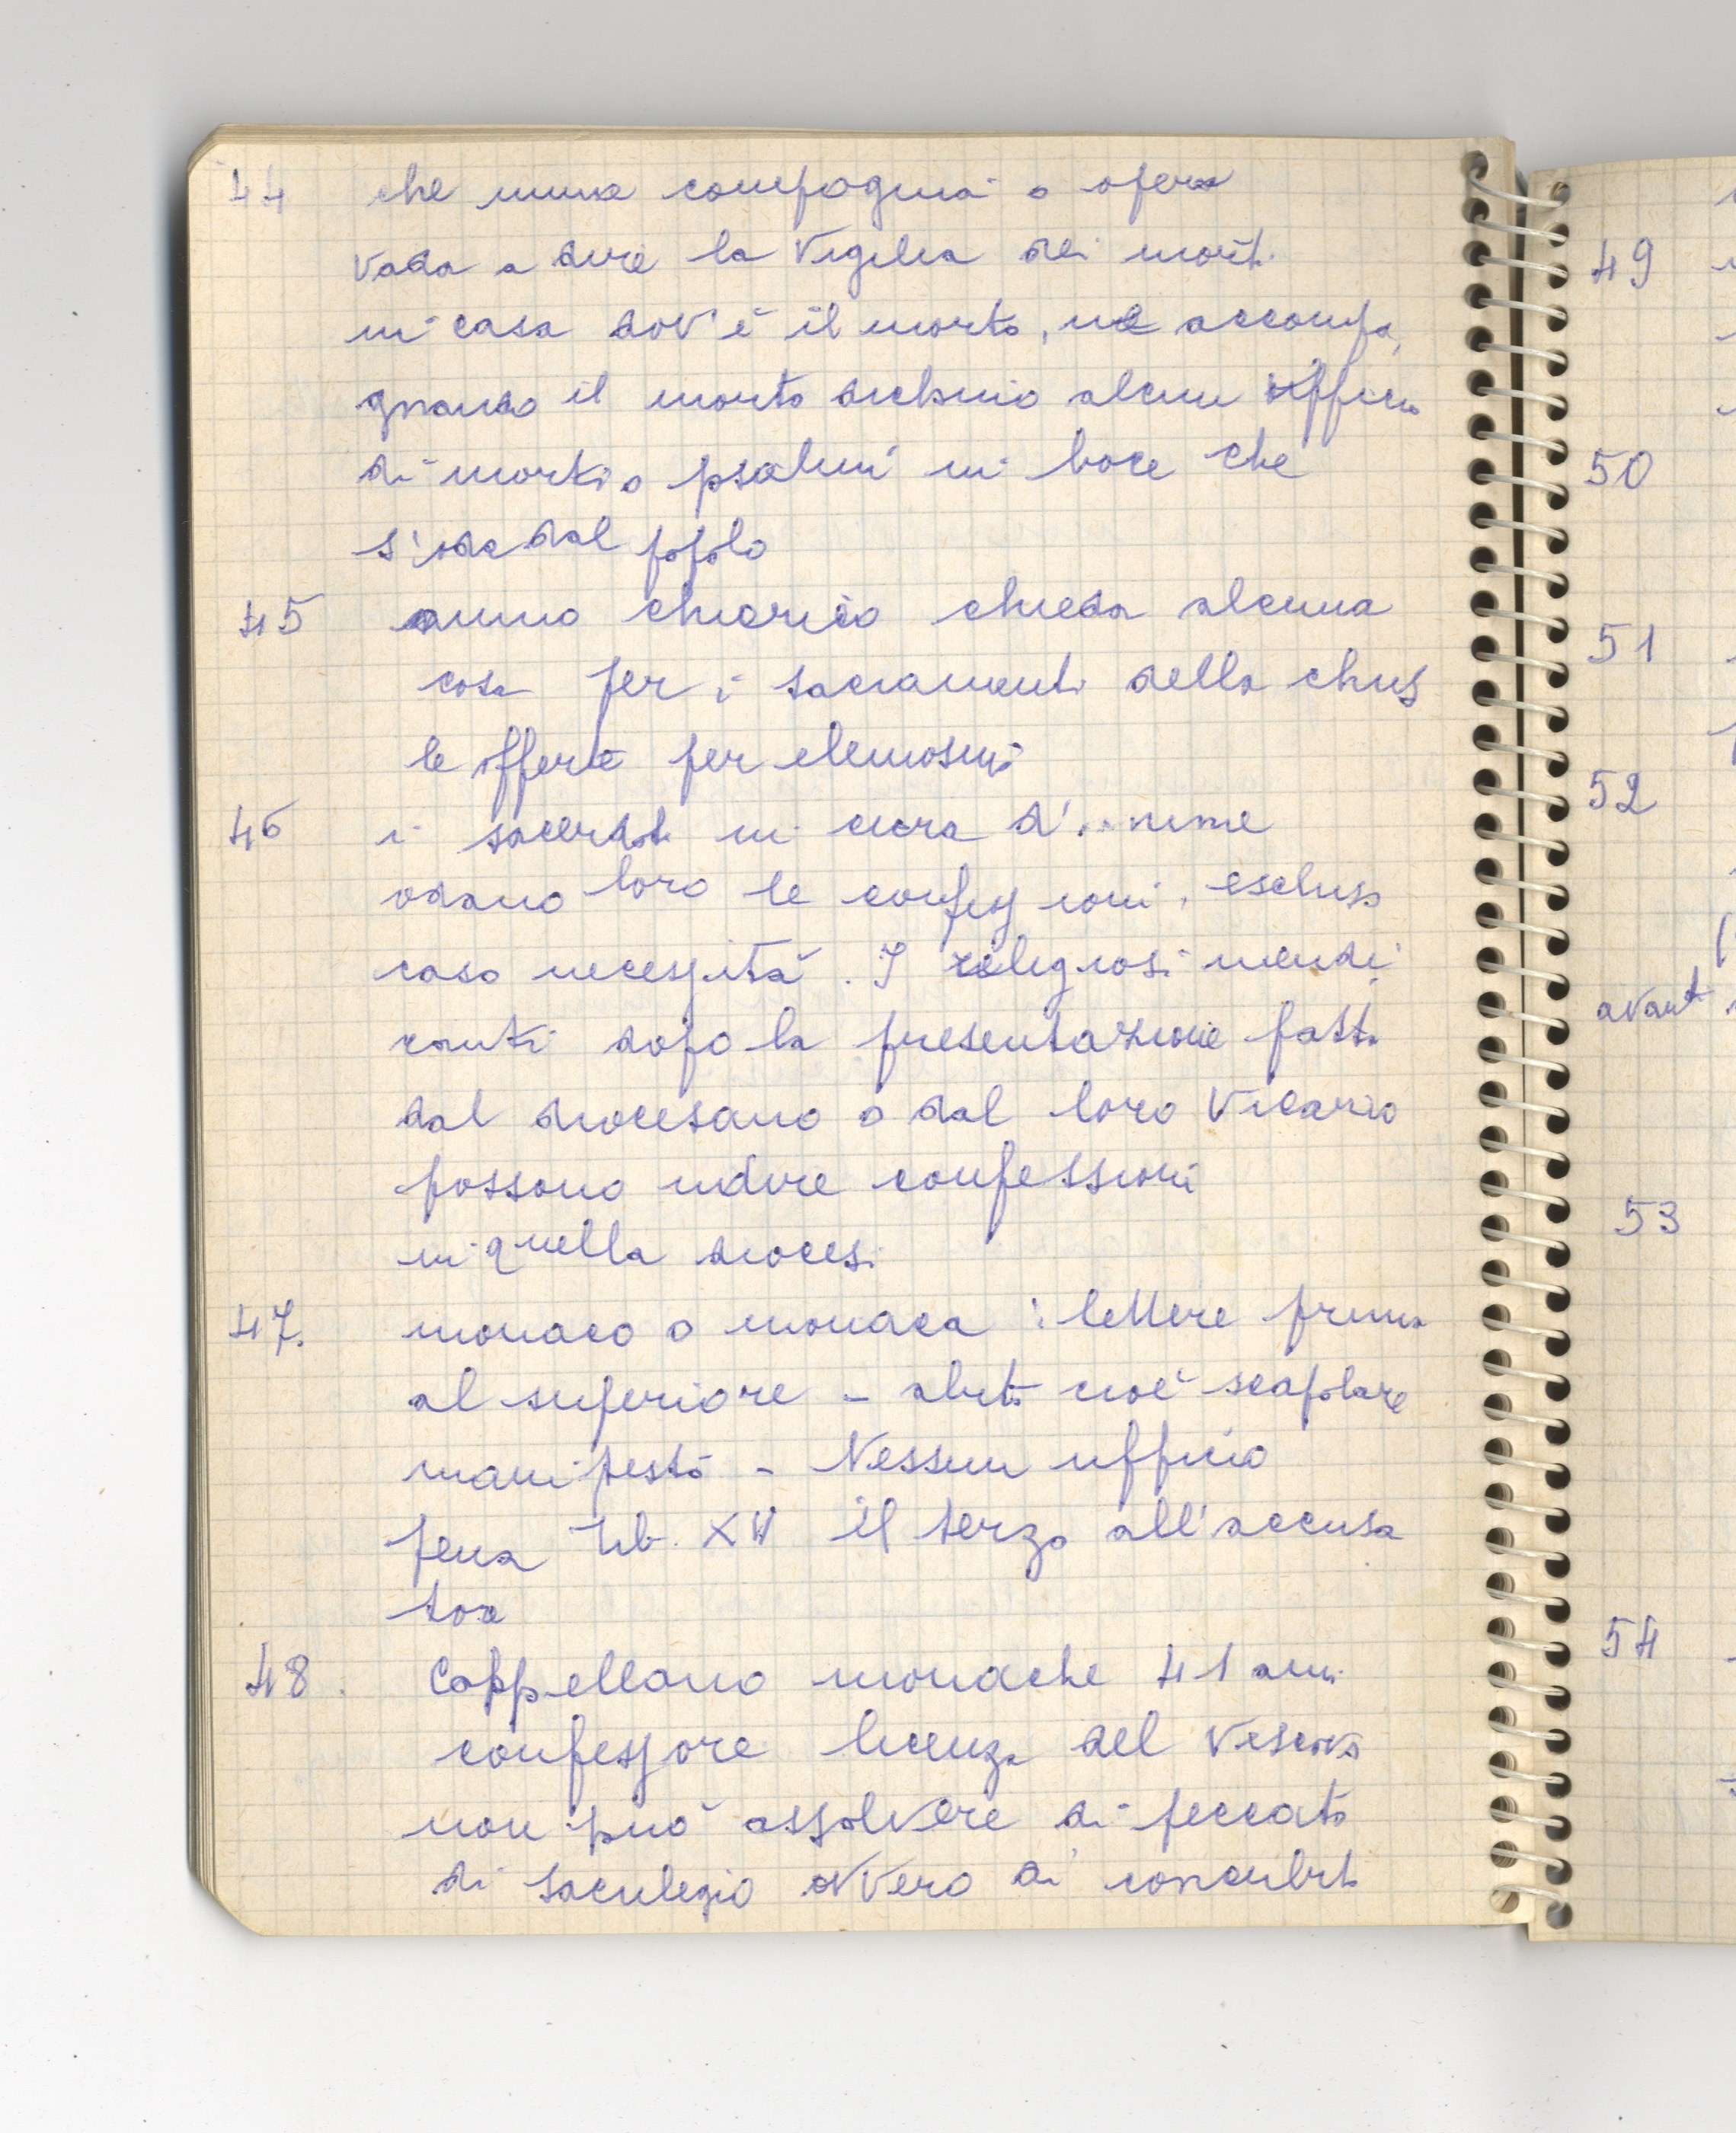 44 che niuna compagnia o opera
vada a dire la Vigilia dei morti
in casa dov'è il morto, nè accompa
gnando il morto dichino alcun officio
di morti o psalmi in boce che
s'ode dal popolo
45 niuno chierico chieda alcuna
cosa per i sacramenti della chies
le offerte per elemosina
46 i sacerdoti in cura d'anime
odano loro le confessioni, escluso
caso necessità. I religiosi mendi
canti dopo la presentazione fatta
dal diocesano o dal loro Vicario
possono udire confessioni
in quella diocesi
47. monaco o monaca : lettere prima
al superiore - abito cioè scapolare
manifesto - Nessun ufficio
pena lib. XV il terzo all'accusa
tore
48. Cappellano monache 41 anni
confessore licenza del Vescovo
non può assolvere di peccato
di sacrilegio ovvero di concubito
49
50
51
52
avanti
53
54